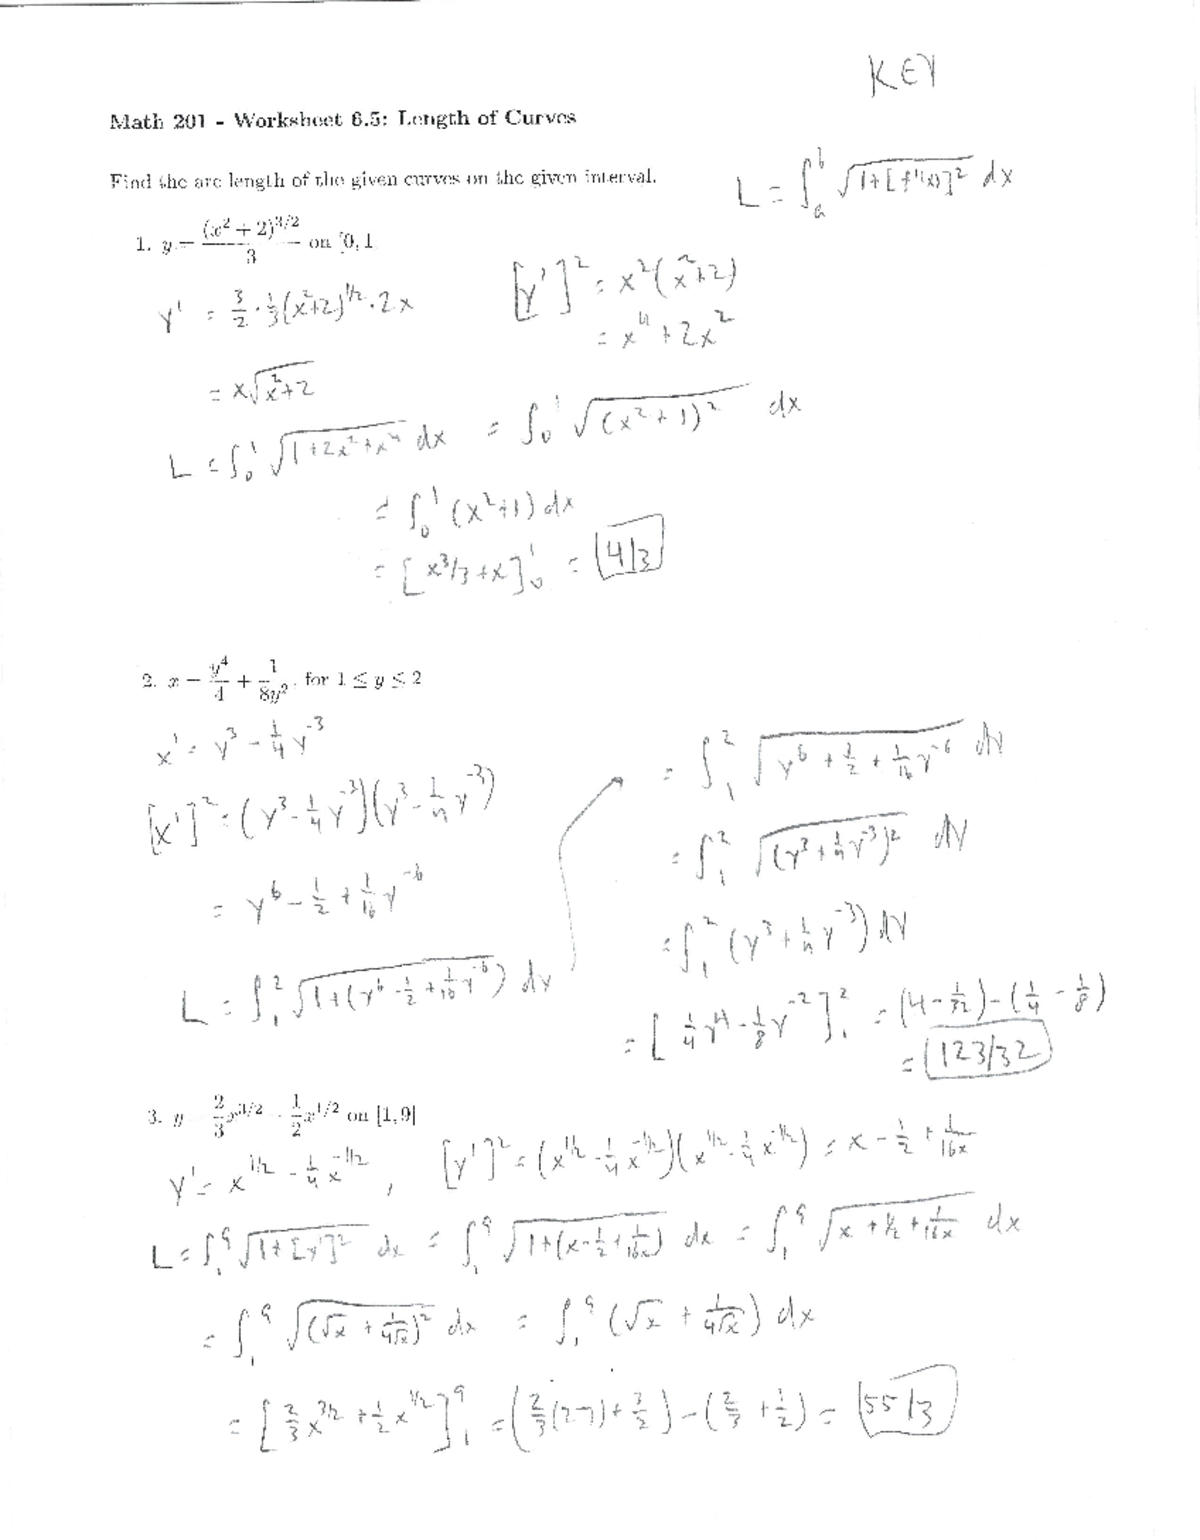 KEY
Math 201 - Worksheet 6.5: Length of Curves
Find the arc length of the given curves on the given interval.
L = ∫_a^b √(1+[f'(x)]²) dx
1. y = (x² + 2)^{3/2} / 3 on [0, 1
y' = 3/2 · 1/3 (x²+2)^{1/2} · 2x
[y']² = x²(x²+2)
= x⁴ + 2x²
= x√(x²+2)
L = ∫_0^1 √(1+2x²+x⁴) dx = ∫_0^1 √((x²+1)²) dx
= ∫_0^1 (x²+1) dx
= [x³/3 + x]_0^1 = 4/3
2. x = y⁴/4 + 1/(8y²), for 1 ≤ y ≤ 2
x' = y³ - 1/4 y^{-3}
[x']² = (y³ - 1/4 y^{-3})(y³ - 1/4 y^{-3})
= y⁶ - 1/2 + 1/16 y^{-6}
L = ∫_1^2 √(1+(y⁶ - 1/2 + 1/16 y^{-6})) dx
= ∫_1^2 √(y⁶ + 1/2 + 1/16 y^{-6}) dy
= ∫_1^2 √((y³ + 1/4 y^{-3})²) dy
= ∫_1^2 (y³ + 1/4 y^{-3}) dy
= [1/4 y⁴ - 1/8 y^{-2}]_1^2 = (4 - 1/32) - (1/4 - 1/8)
= 123/32
3. y = 2/3 x^{3/2} - 1/2 x^{1/2} on [1, 9]
y' = x^{1/2} - 1/4 x^{-1/2}, [y']² = (x^{1/2} - 1/4 x^{-1/2})(x^{1/2} - 1/4 x^{-1/2}) = x - 1/2 + 1/16x
L = ∫_1^9 √(1+[y']²) dx = ∫_1^9 √(1+(x - 1/2 + 1/16x)) dx = ∫_1^9 √(x + 1/2 + 1/16x) dx
= ∫_1^9 √((√x + 1/(4√x))²) dx = ∫_1^9 (√x + 1/(4√x)) dx
= [2/3 x^{3/2} + 1/2 x^{1/2}]_1^9 = (2/3(27) + 3/2) - (2/3 + 1/2) = 55/3